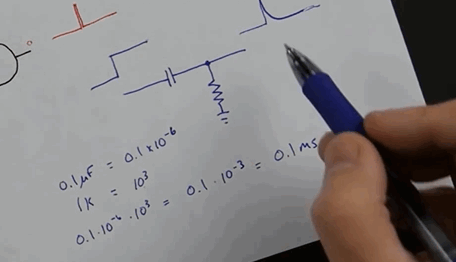 0.1µF = 0.1×10⁻⁶
1K = 10³
0.1·10⁻⁶·10³ = 0.1·10⁻³ = 0.1ms